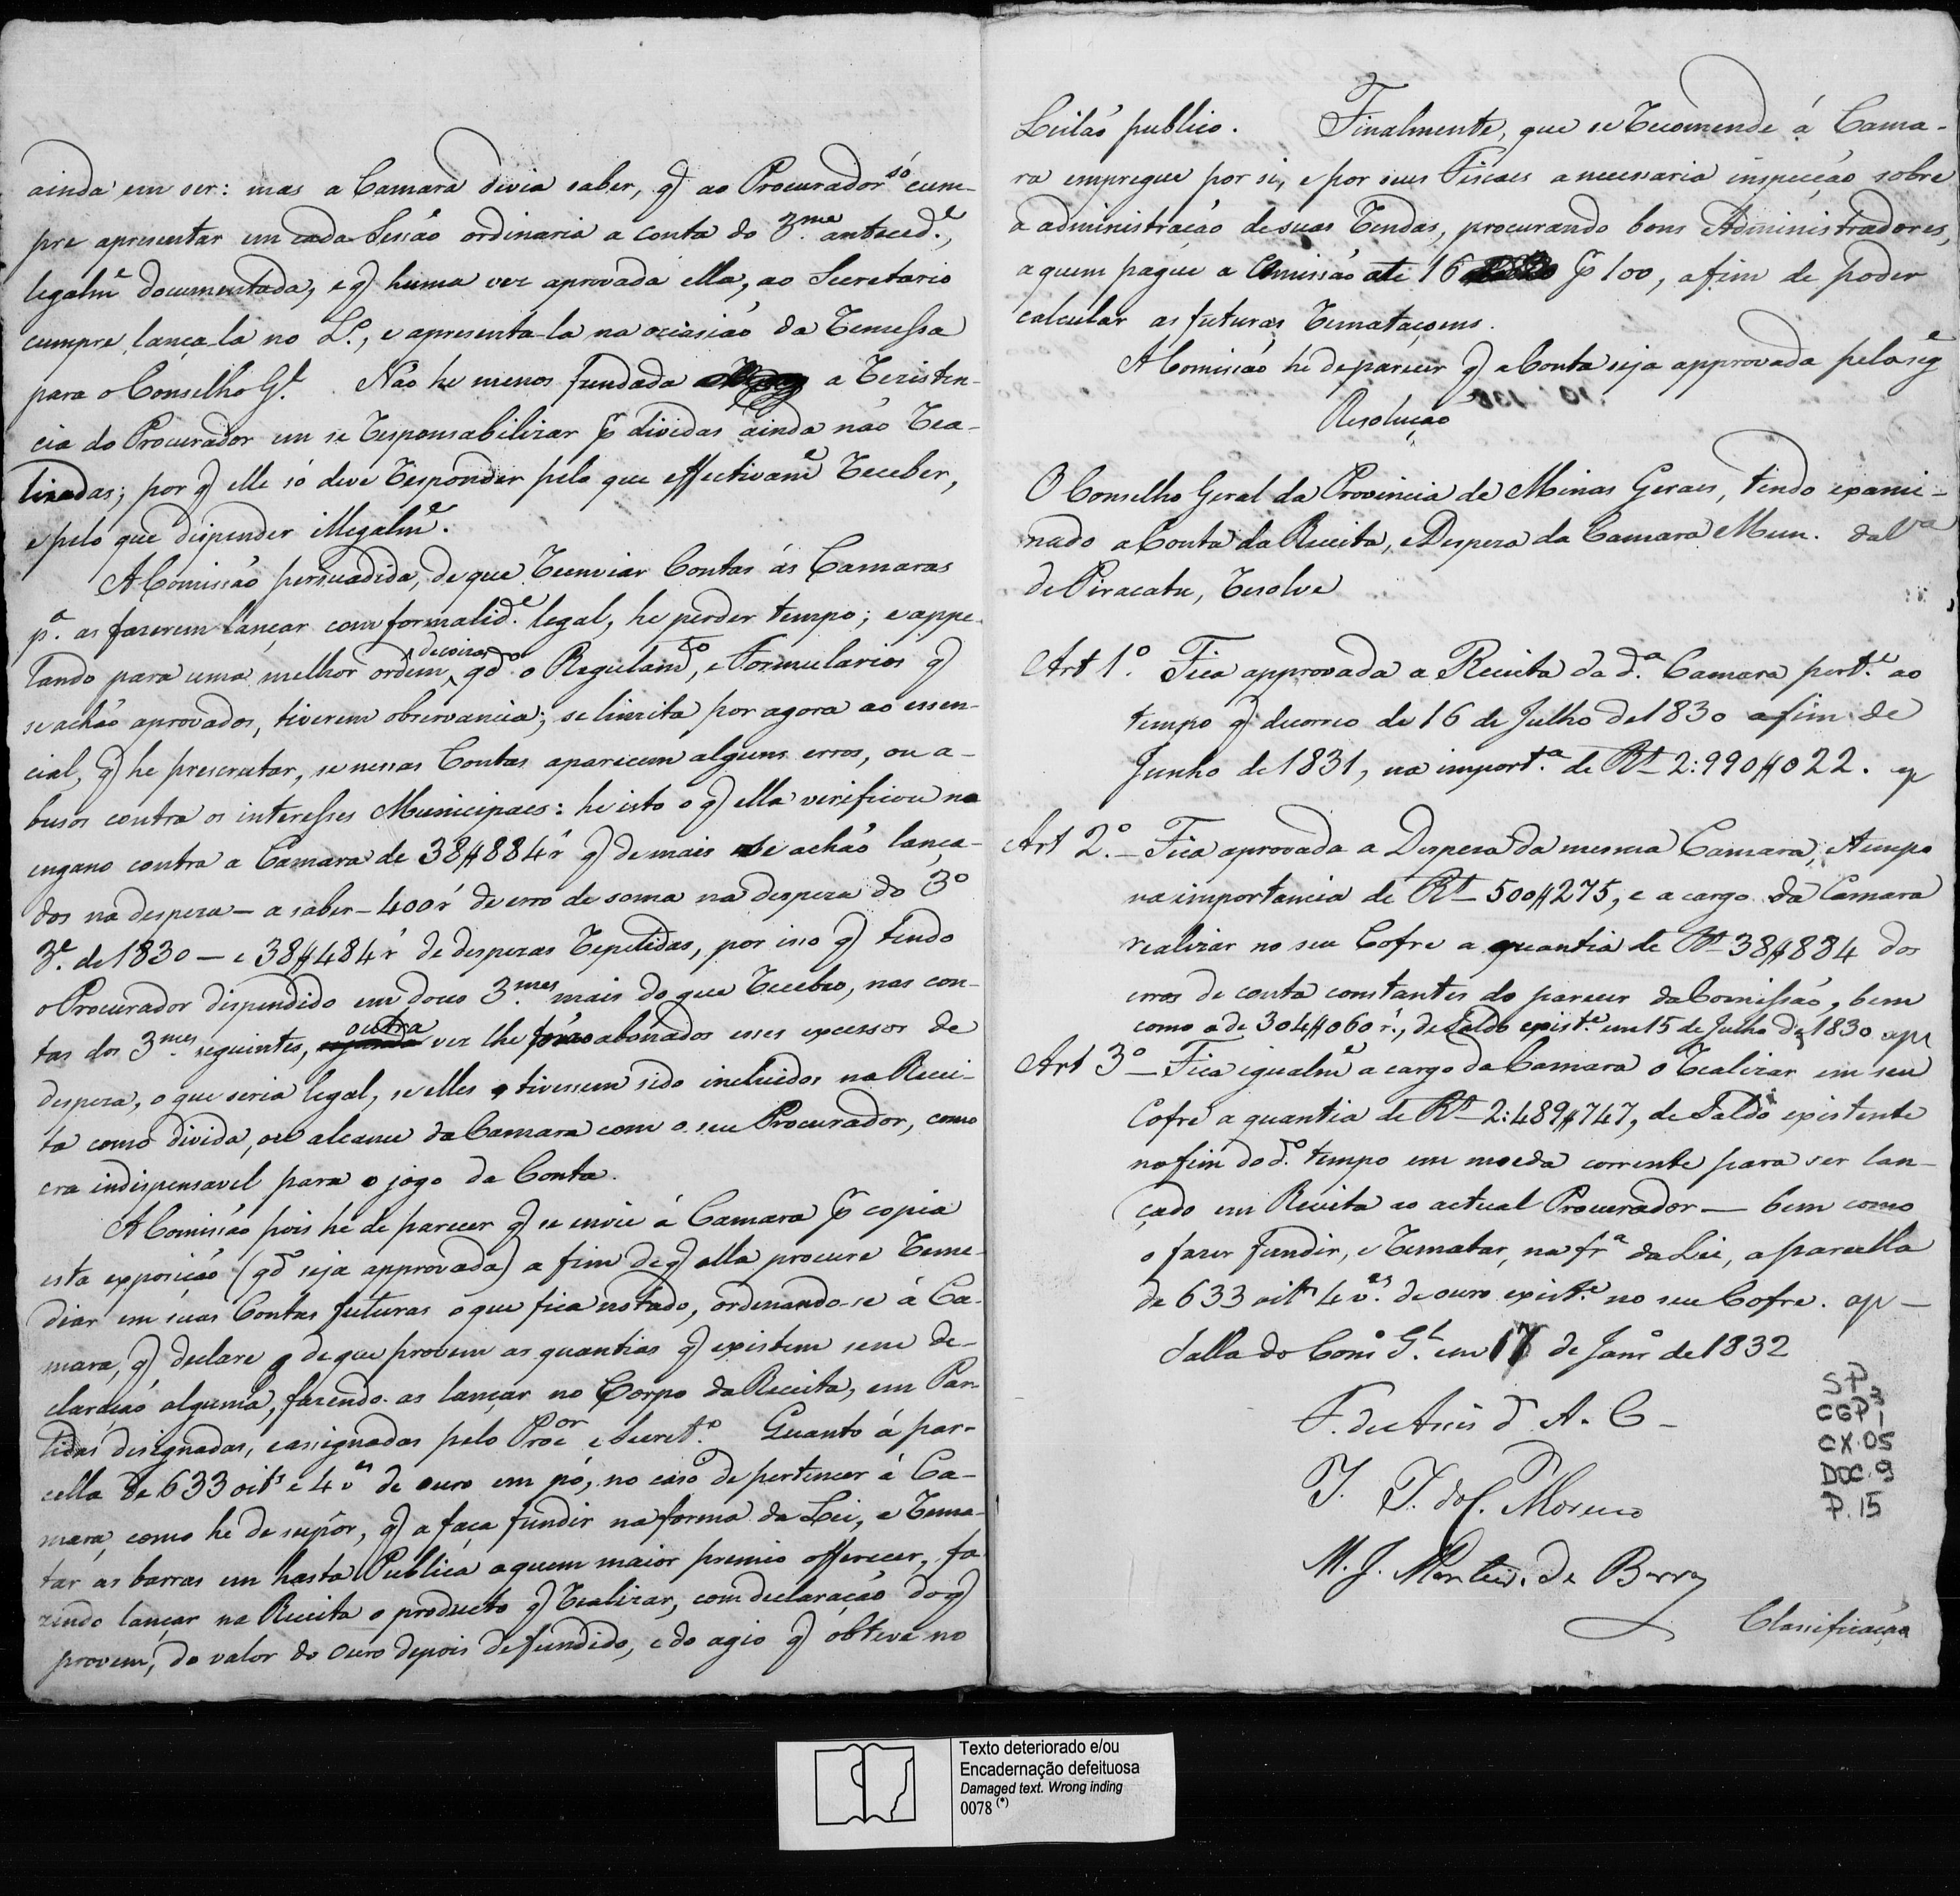 ainda em ser: mas a Camara divia saber, q ao Procurador só cum-
pre apresentar em cada Sessão ordinaria a conta do 3.me anteced.e,
legalme documentada, e q huma vez aprovada ella, ao Secretario
cumpre lança-la no L.o, e apresenta-la na occasião da Remessa
para o Conselho G.l Não he menos fundada a Rezisten-
cia do Procurador em se Responsabilizar p dividas ainda não Rea-
lizadas; por q elle só deve Responder pelo que effectivame Receber,
e pelo que dispender illegalme.
A Comissão persuadida, de que Reenviar Contas ás Camaras
p.a as fazerem lançar com formalid.e legal, he perder tempo; e appe-
lando para uma melhor ordem de coizas, qdo o Regulamto, e Formularios q
se achão aprovados, tiverem observancia; se limita por agora ao essen-
cial, q he prescrutar, se nessas Contas aparecem alguns erros, ou a-
busos contra os interesses Municipaes: he isto o q ella verificou no
engano contra a Camara de 38$884 r q de mais se achão lança-
dos na despeza — a saber — 400 r de erro de soma na despeza do 3o
3.e de 1830 — e 38$484 r de despezas Repetidas, por isso q tendo
o Procurador dispendido em douo 3.mes mais do que Recebeo, nas con-
tas dos 3mes seguintes, outra vez lhe forão abonados esses excessos de
despeza, o que seria legal, se elles tivessem sido incluidos na Recei-
ta como divida, ou alcance da Camara com o seu Procurador, como
era indispensavel para o jogo da Conta.
A Comissão pois he de parecer q se envie á Camara p copia
esta exposição (qdo seja approvada) a fim de q ella procure Reme-
diar em suas Contas futuras o que fica notado, ordenando-se á Ca-
mara, q declare de que provem as quantias q existem sem de-
claração alguma, fazendo-as lançar no Corpo da Receita, em Par-
tidas designadas, e assignadas pelo Procor e Secret.o Quanto á par-
cella de 633 oits e 4 vs de ouro em pó, no caso de pertencer á Ca-
mara, como he de supôr, q a faça fundir na forma da Lei, e Rema-
tar as barras em hasta Publica a quem maior premio offerecer, fa-
zendo lançar na Receita o producto q Realizar, com declaração do q
provem, do valor do ouro depois de fundido, e do agio q obteve no
Leilão publico. Finalmente, que se Recomende á Cama-
ra empregue por si, e por seus Fiscaes a necessaria inspecção sobre
a administração de suas Rendas, procurando bons Administradores,
a quem pague a Comissão até 16 p 100, afim de poder
calcular as futuras Remataçoens.
A Comissão he de parecer q a Conta seja approvada pela sege
Resolução
O Conselho Geral da Provincia de Minas Geraes, tendo exami-
nado a Conta da Receita, e Despeza da Camara Mun. da Va
de Piracatu, Resolve
Art 1o. Fica approvada a Receita da d.a Camara pert.e ao
tempo q decorreo de 16 de Julho de 1830 a fim de
Junho de 1831, na import.a de Rs 2:990$022. ap
Art 2o. — Fica aprovada a Despeza da mesma Camara, e tempo
na importancia de Rs — 500$275, e a cargo da Camara
realizar no seu Cofre a quantia de Rs 38$884 dos
erros de conta constantes do parecer da Comissão, bem
como a de 304$060 r., de Saldo exist.e em 15 de Julho de 1830 ap
Art 3o — Fica igualme a cargo da Camara o Realizar em seu
Cofre a quantia de Rs — 2:489$747, de Saldo existente
no fim do d.o tempo em moeda corrente para ser lan-
çado em Receita ao actual Procurador — bem como
o fazer fundir, e Rematar, na fra da Lei, a parcella
de 633 oits 4 vs. de ouro exist.e no seu Cofre. ap —
Salla do Conso G.l em 17 de Janro de 1832
F. de Assis d' A. C —
J. J. dos S. Moreno
M. J. Montei. de Barros
Classificação
SP
CGP3 1
CX.05
DOC.9
P.15
Texto deteriorado e/ou
Encadernação defeituosa
Damaged text. Wrong inding
0078 (*)